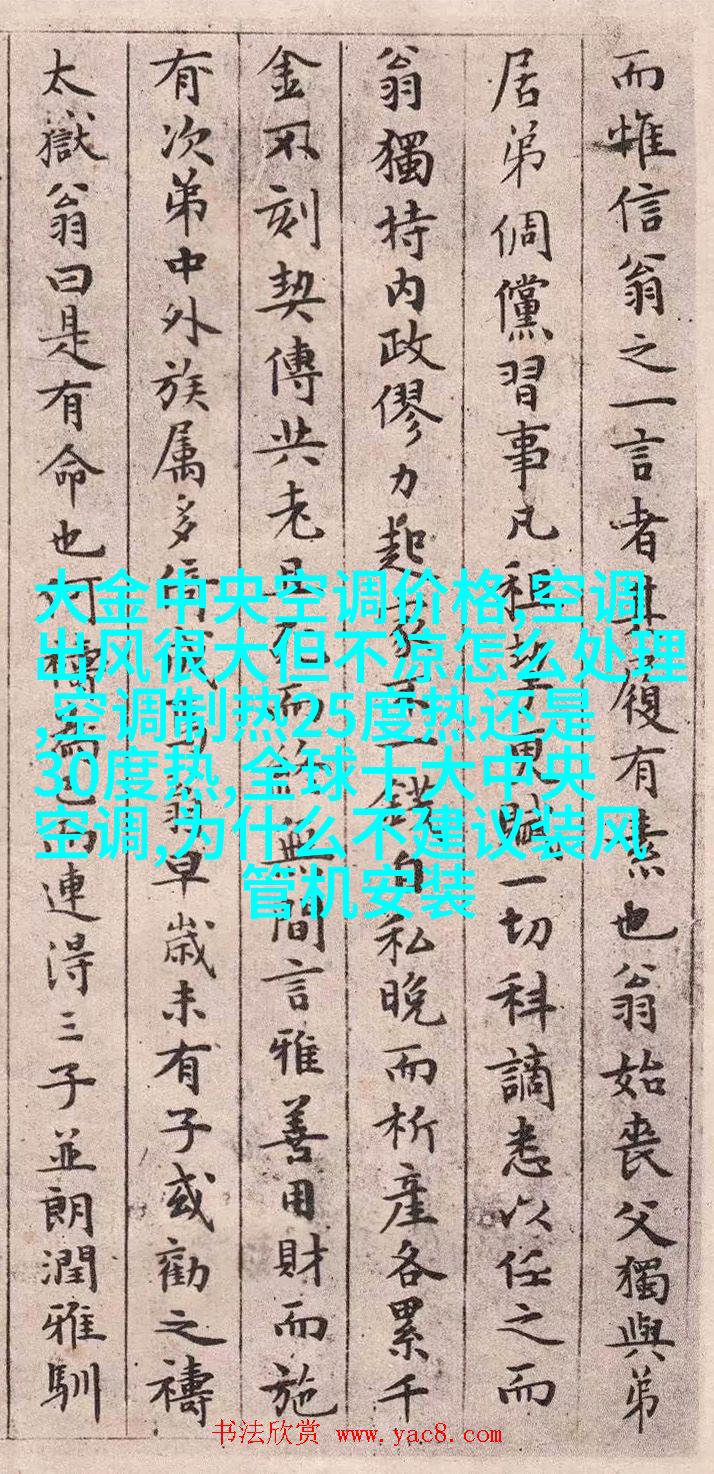 而惟信翁之一言者其履有素也翁始喪父獨與弟
居弟倜儻習事凡租更賦一切科謫悉以任之而
翁獨持内政僇力起家不一錢自私晚而析産各累千
金不刻契傳共老且死而無間言雅善用財而施
有次第中外族属多倚翁早歳未有子或勸之禱
太嶽翁曰是有命也何禱而連得三子並朗潤雅馴
大金中央空调价格,空调
出风很大但不凉怎么处理
,空调制热25度热还是
30度热,全球十大中央
空调,为什么不建议装风
管机安装
书法欣赏 www.yac8.com